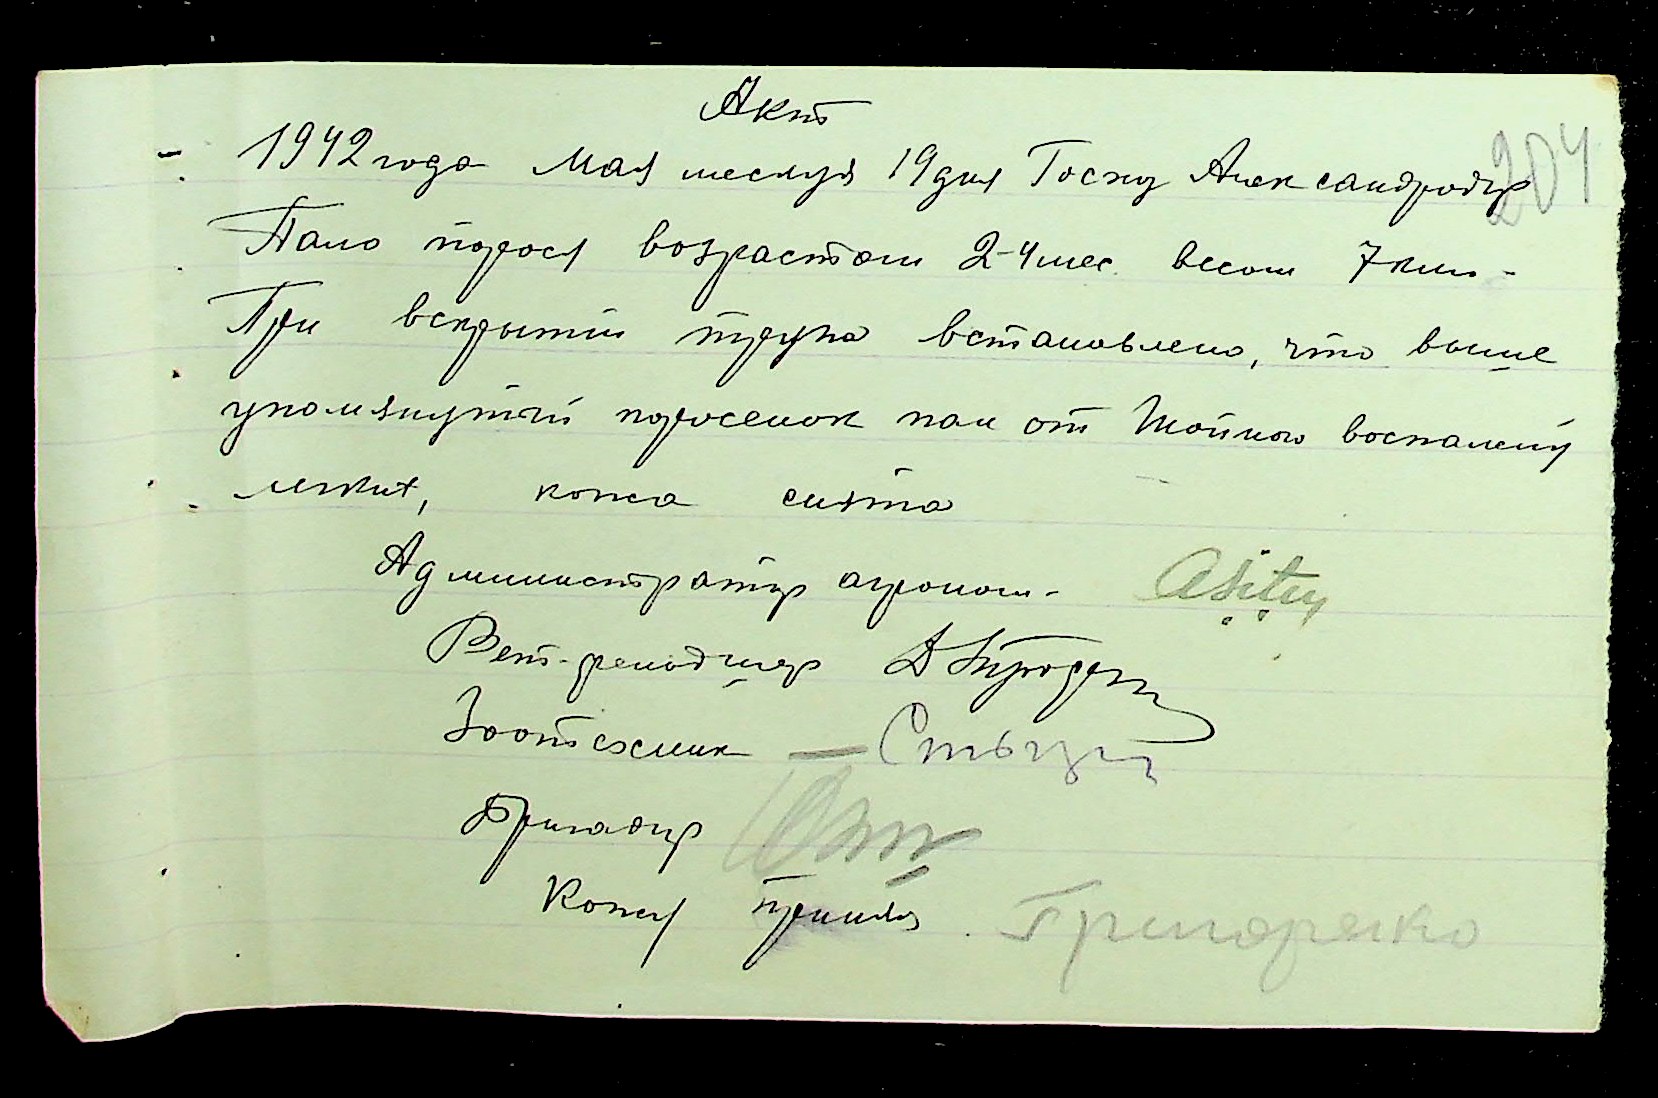 Акт
204
1942 года мая месяця 19 дня Госху Александродар
Пало порося возрастом 2-4 мес. весом 7 килг-
При вскрытии трупа встановлено, что выше
упомянутий поросенок пал от гнойного воспаления
легких, кожа снята
Администратор агроном-
Вет-фельдшер
Зоотехник —
Бригадир
Кожу принял. Григоренко